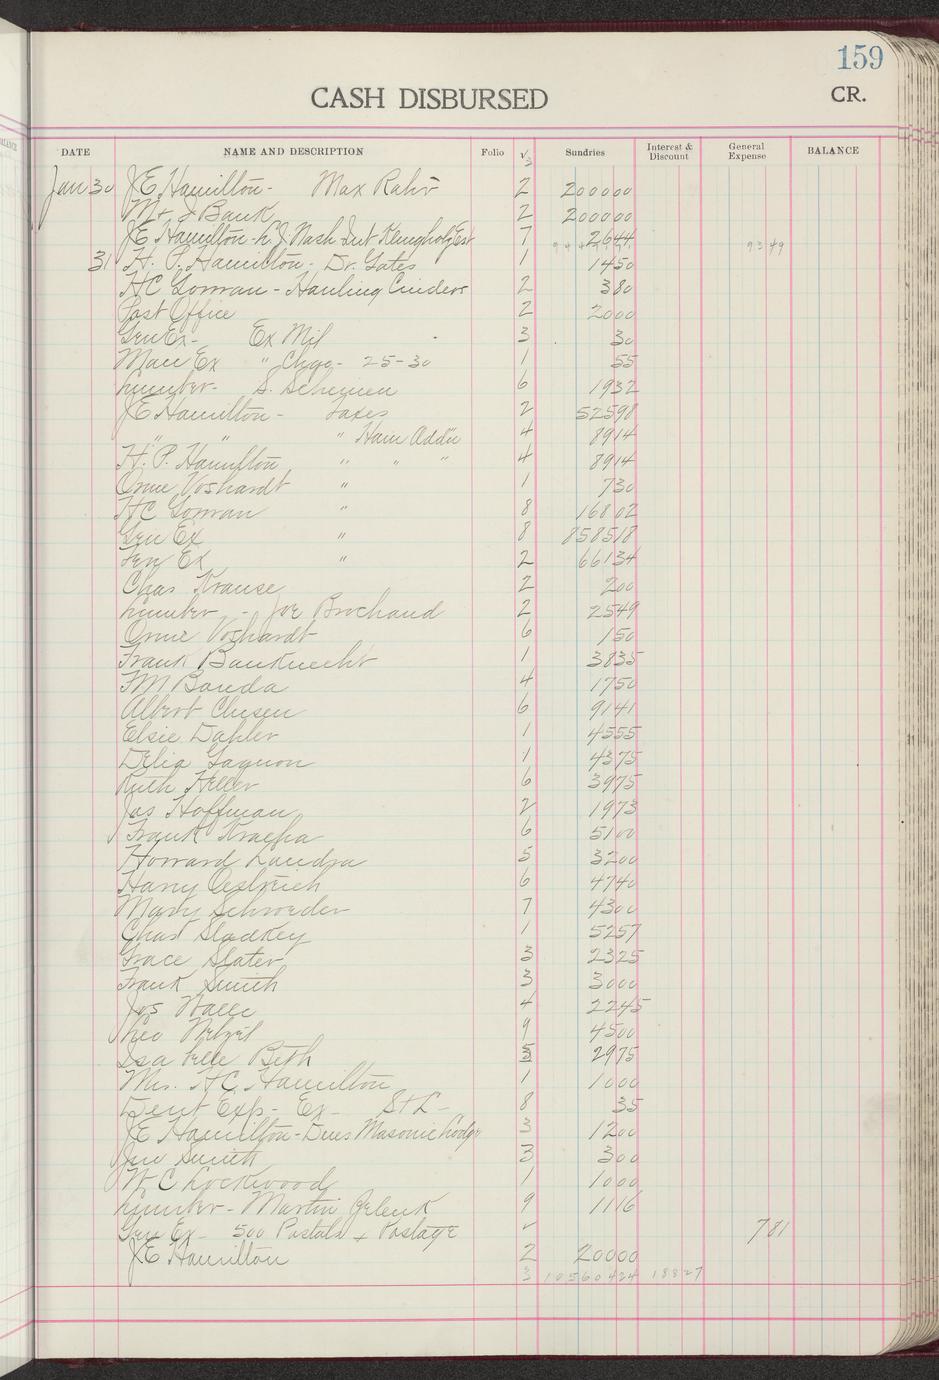 159
CASH DISBURSED
CR.
DATE NAME AND DESCRIPTION Folio √ Sundries Interest & Discount General Expense BALANCE
3
Jan 30 J E Hamilton - Max Rahr 2 2000 00
M & I Bank 2 2000 00
J E Hamilton - Int Est 7 26 44
93 49
31 H. P. Hamilton - Dr. Gates 1 14 50
H C Gowran - Hauling Cinders 2 3 80
Post Office 2 20 00
Gen Ex - Ex Mil 3 30
Man Ex " Chgo - 25-30 1 55
Lumber - S. Scheinen 6 19 32
J E Hamilton - Taxes 2 525 98
" " " Ham Addn 4 89 14
H. P. Hamilton " " " 4 89 14
Orme Voshardt " 1 7 30
H C Gowran " 8 168 02
Gen Ex " 8 8585 18
Ex " 2 661 34
Chas Krause 2 2 00
Lumber - Joe Brochaud 2 25 49
Orme Voshardt 6 1 50
Frank Bauknecht 1 38 35
F M Banda 4 17 50
Albert Clusen 6 91 41
Elsie Dahler 1 45 55
Delia Gagnon 1 43 75
Ruth Heller 6 39 75
Jas Hoffman 2 19 73
Frank Kraepa 6 51 00
Howard Landra 5 32 00
Harry Oestreich 6 47 40
Mary Schroeder 7 43 00
Chas Sladkey 1 52 57
Grace Slater 3 23 25
Frank Smith 3 30 00
Jos Walle 4 22 45
Theo Wetzel 9 45 00
Isa Belle Beth 5 29 75
Mrs. H C Hamilton 1 10 00
Dent Exp - Ex - S & L - 8 35
J E Hamilton - Dues Masonic Lodge 3 12 00
Jno Smith 3 3 00
W C Lockwood 1 10 00
Lumber - Martin Jelenk 9 11 16
Gen Ex - 500 Postals & Postage √ 7 81
J E Hamilton 2 200 00
3 105604 24 188 27